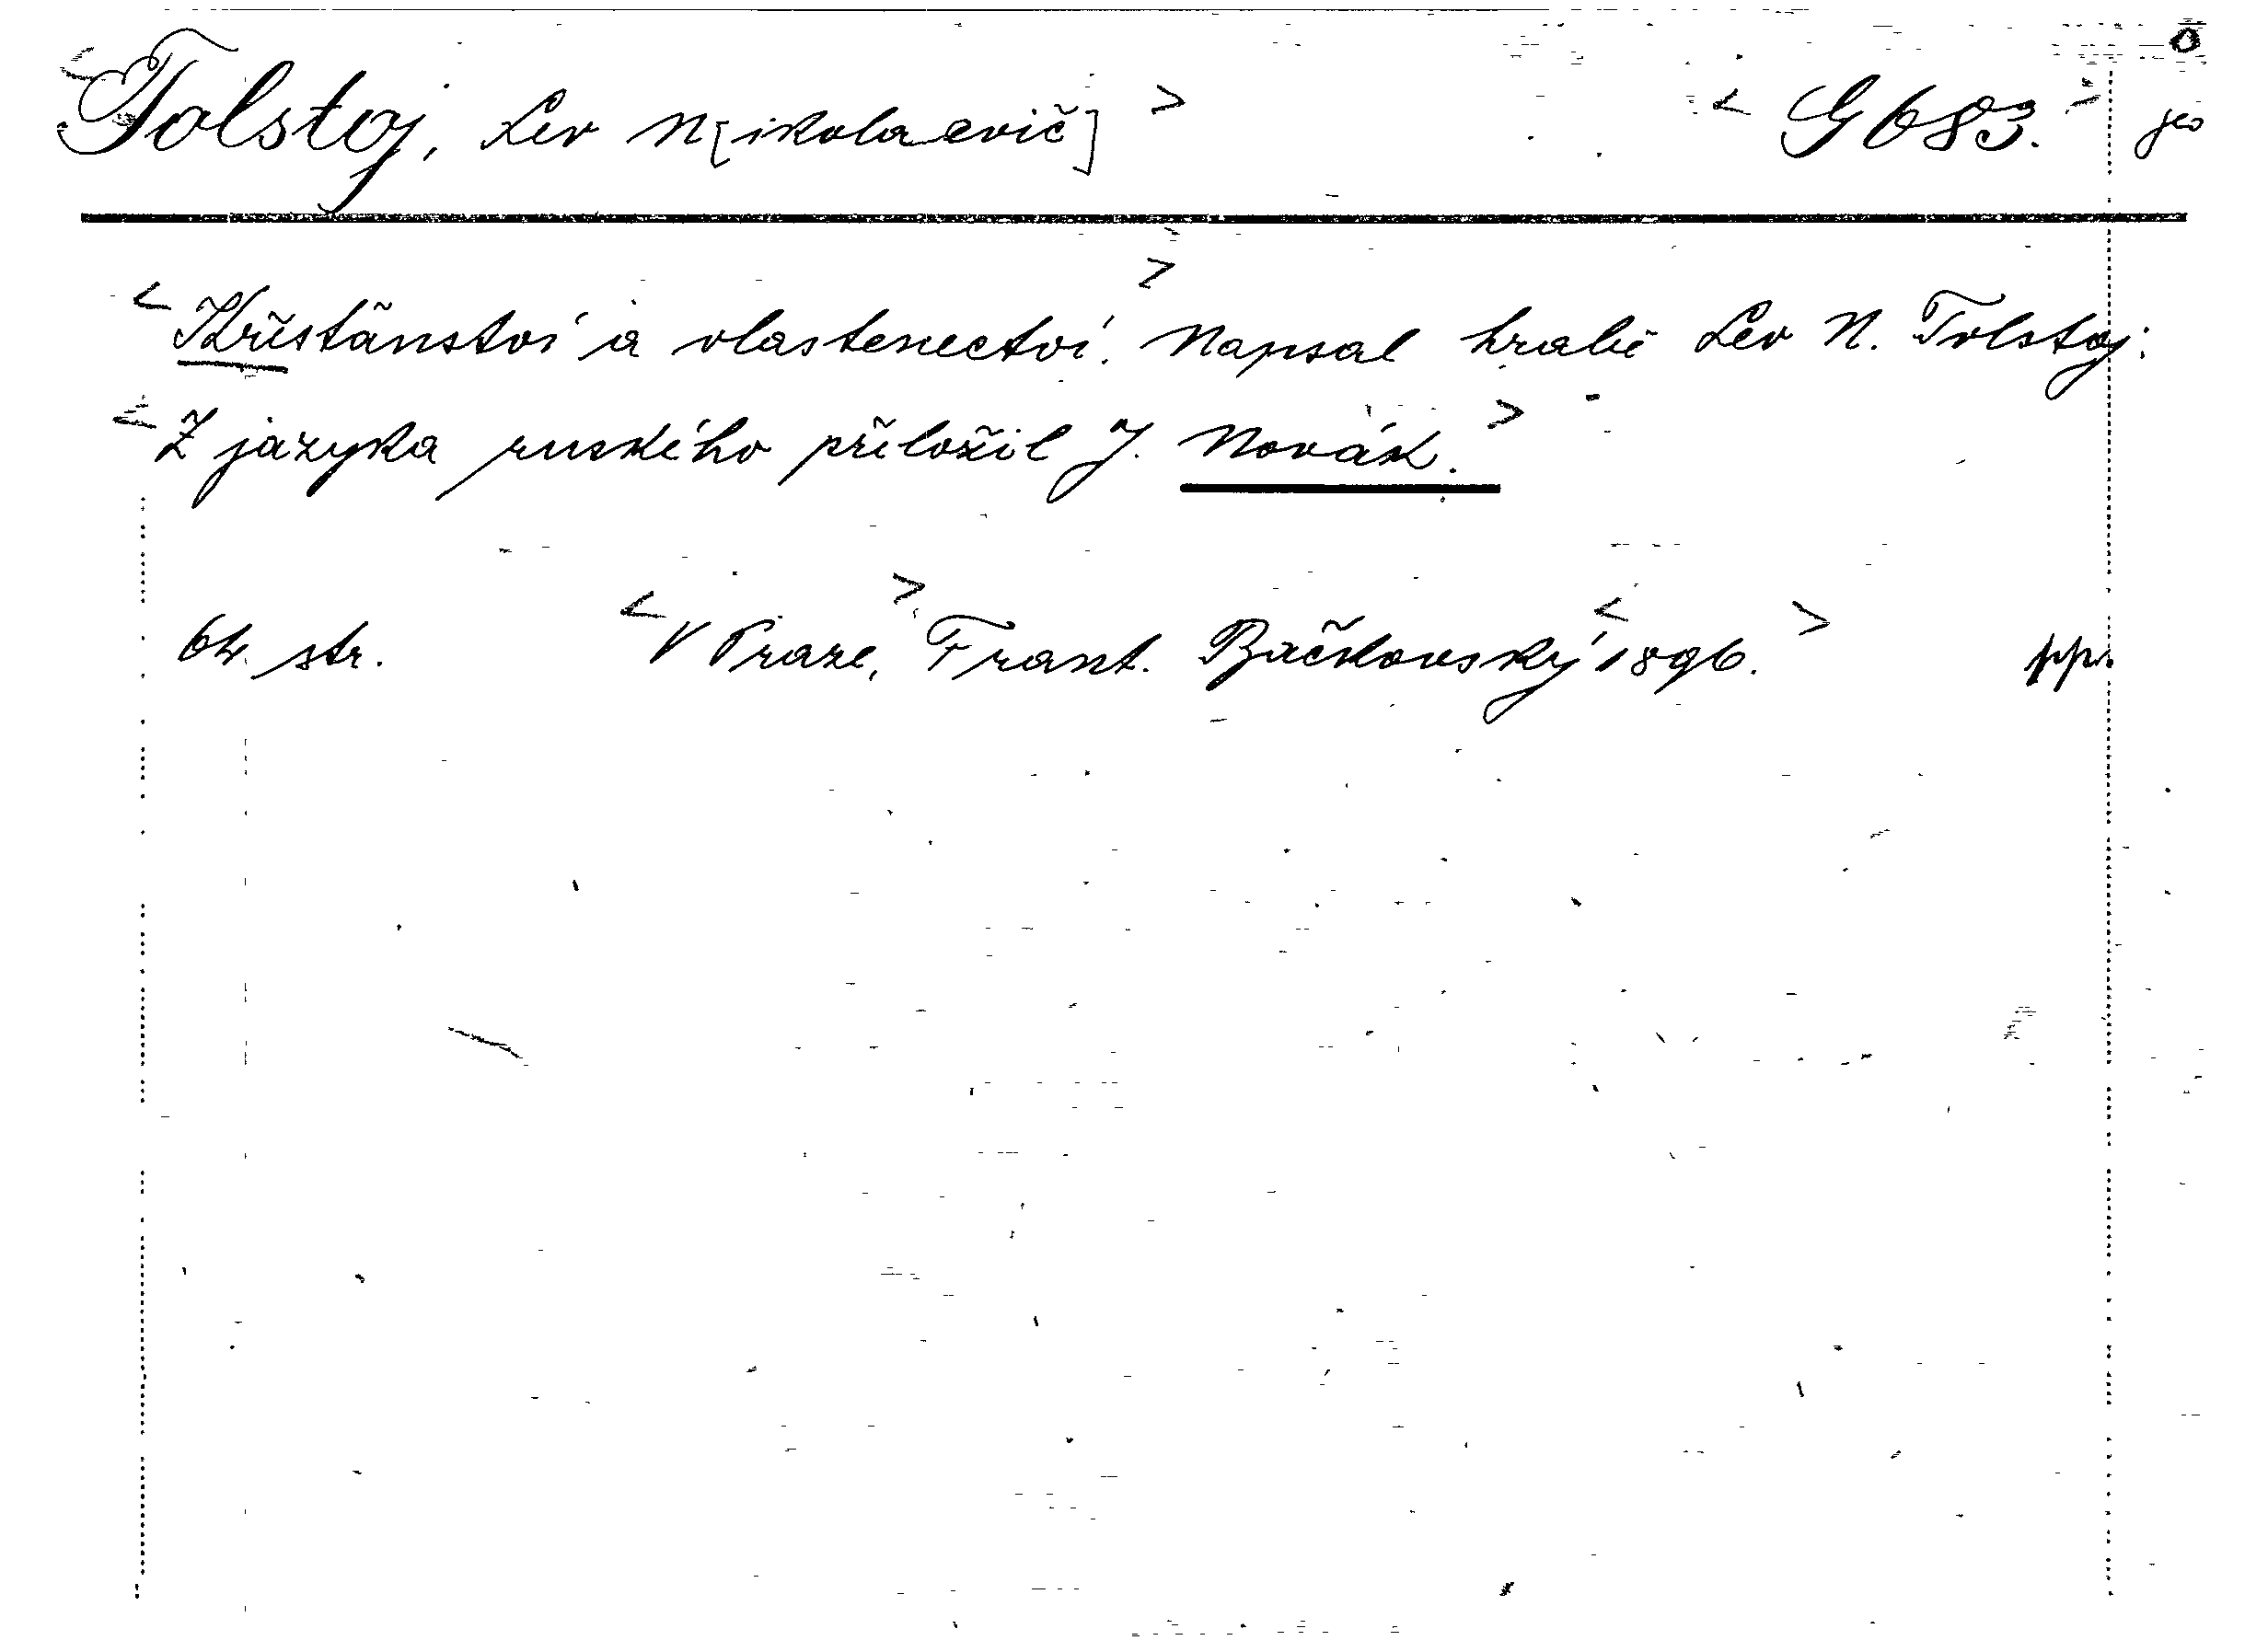 <Tolstoj, Lev N[ikolaevič]> <G 683.>
<Křesťanství a vlastenectví.> Napsal hrabě Lev N. Tolstoj.
<Z jazyka ruského přeložil J. Novák.>
64 str. <V Praze,> Frant. Bačkovský <1896.> pp.